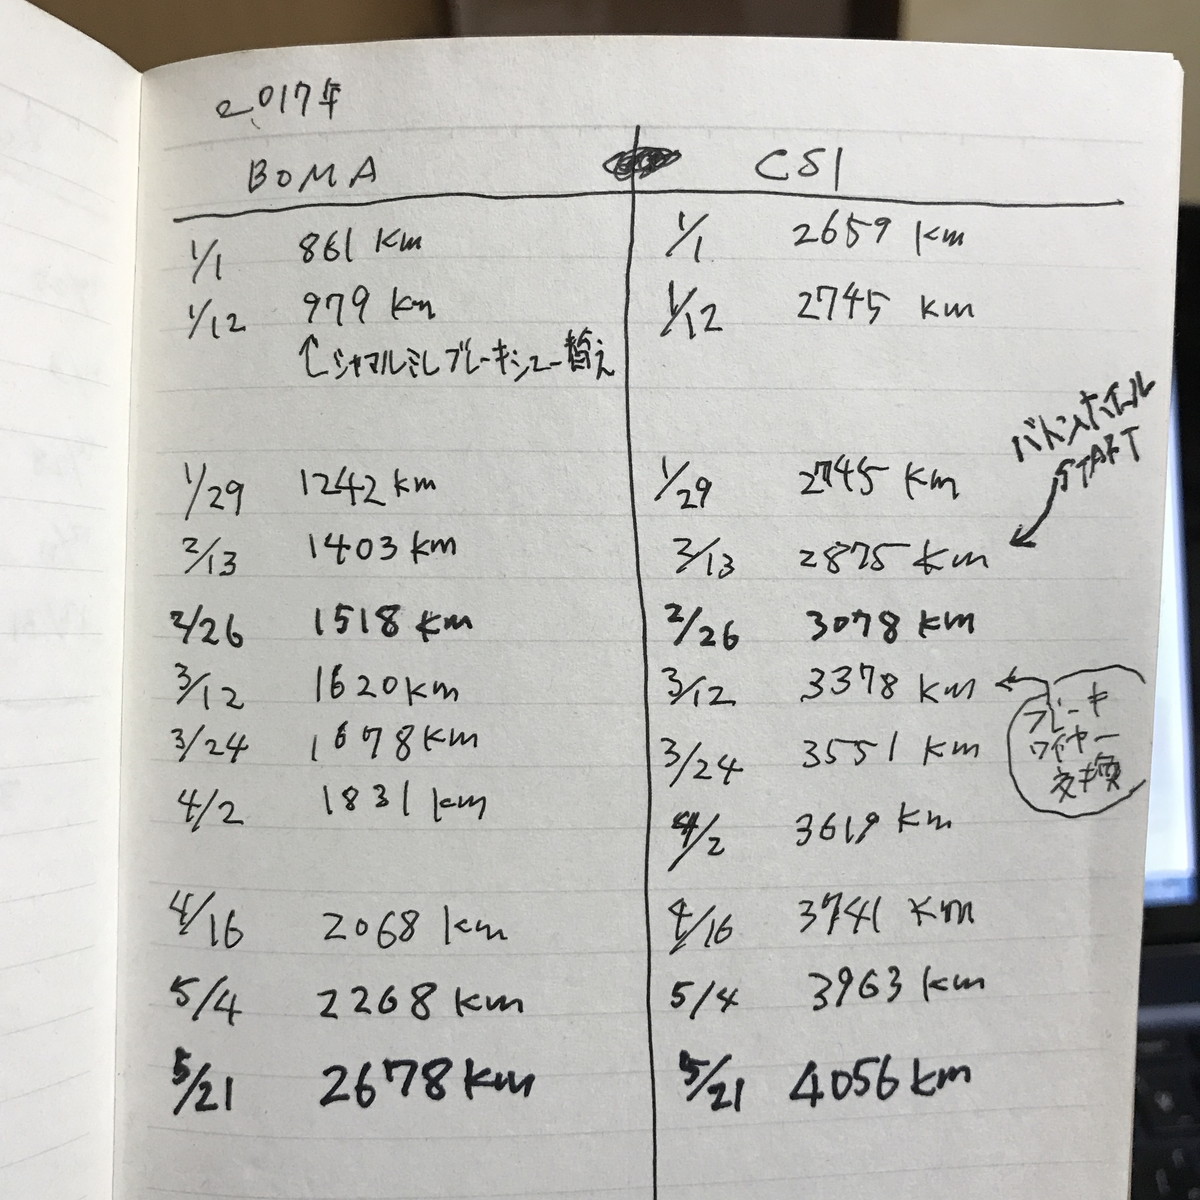 2017年
BOMA CS1
1/1 861 km 1/1 2659 km
1/12 979 km 1/12 2745 km
↑シャマルミレ ブレーキシュー替え
バトンホイール
START
1/29 1242 km 1/29 2745 km
2/13 1403 km 2/13 2875 km
2/26 1518 km 2/26 3078 km
3/12 1620 km 3/12 3378 km
ブレーキ
ワイヤー
交換
3/24 1678 km 3/24 3551 km
4/2 1831 km 4/2 3619 km
4/16 2068 km 4/16 3741 km
5/4 2268 km 5/4 3963 km
5/21 2678 km 5/21 4056 km